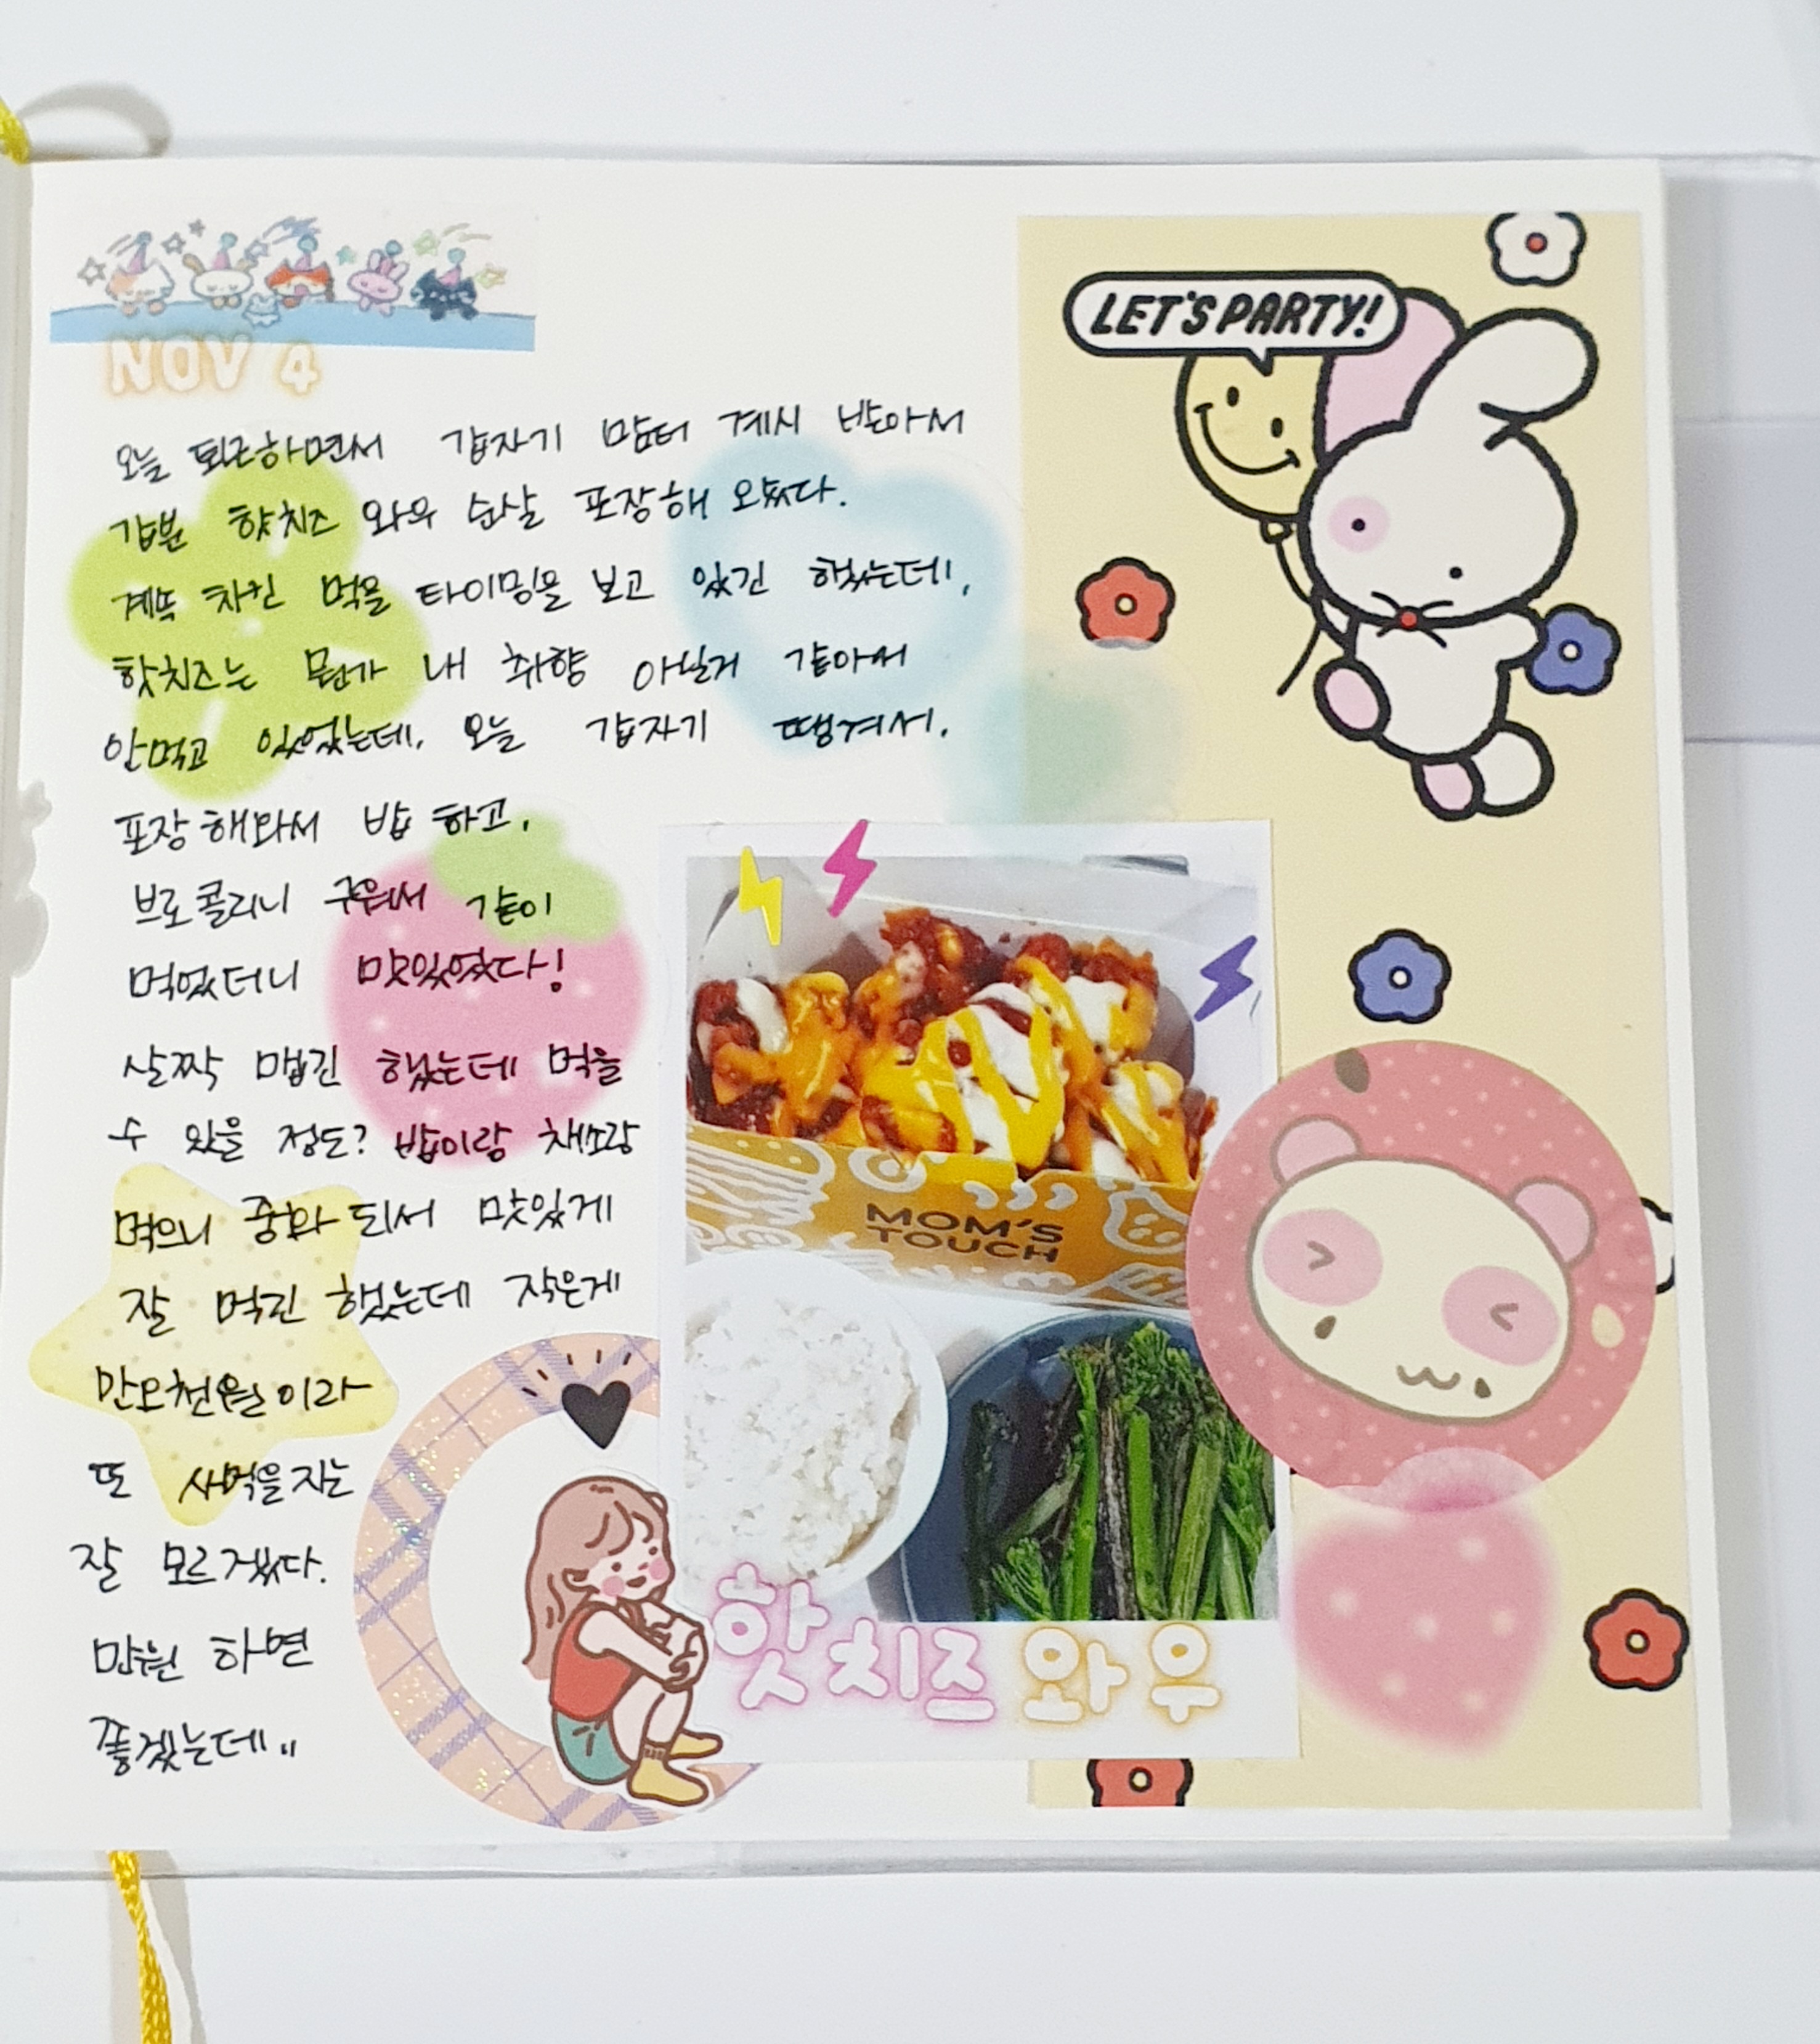 NOV 4
오늘 퇴근하면서 갑자기 맘터 계시 받아서
갑분 핫치즈 와우 순살 포장해 오셨다.
계속 치킨 먹을 타이밍을 보고 있긴 했는데,
핫치즈는 뭔가 내 취향 아닐거 같아서
안먹고 있었는데, 오늘 갑자기 땡겨서,
포장해와서 밥 하고,
브로콜리니 구워서 같이
먹었더니 맛있었다!
살짝 맵긴 했는데 먹을
수 있을 정도? 밥이랑 채소랑
먹으니 중화 되서 맛있게
잘 먹긴 했는데 작은게
만오천원이라
또 사먹을지는
잘 모르겠다.
만원 하면
좋겠는데..
LET'S PARTY!
MOM'S
TOUCH
핫치즈 와우